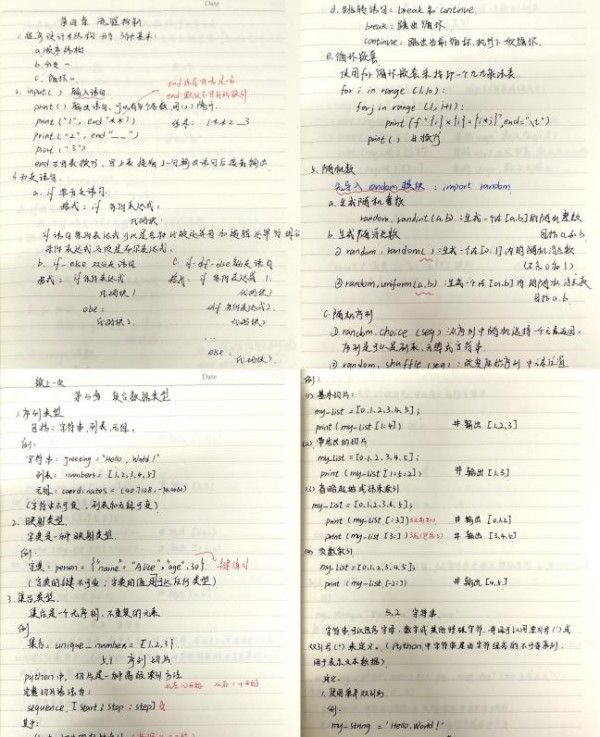 Date
第四章 流程控制
1.程序设计基本结构 共有3个基本:
a.顺序结构
b.分支〃
c.循环〃
2. input() 输入语句
print() 输出语句,可以有多个参数,用(,)隔开.
print("1", end "**")
print("2", end "__")
print("3")
end
结果: 1**2__3
3.分支语句
a. if 单分支语句.
格式: if 条件表达式:
代码块1
b. if-else 双分支语句
格式: if 条件表达式:
代码块1
else:
代码块2.
c. if-elif-else 多分支语句
格式: if 条件表达式1:
代码块1
elif 条件表达式2:
代码块2.
...
else:
代码块
d.跳转语句: break 和 continue.
break: 跳出循环
continue: 跳出当前循环,执行下一次循环.
e.循环嵌套
使用for循环嵌套来打印一个九九乘法表
for i in range (1,10):
for j in range (1, i+1):
print(f"{j}×{i}={i*j}", end="\t")
print() #换行
5.随机数
先导入random模块: import random
a.生成随机整数
random.randint(a,b):生成一个在[a,b]的随机整数
包括a和b.
b.生成随机浮点数
① random.random():生成一个在[0,1]内的随机浮点数
(不含1)
② random.uniform(a,b):生成一个在[a,b]内的随机浮点数
包括a.b
c.随机序列
① random.choice(seq):从序列中随机选择一个元素返回.
序列是可以是列表、元组或字符串
② random.shuffle(seq):改变原始序列中元素位置
接上一页
Date
第五章 复合数据类型
1.序列类型
包括:字符串,列表,元组.
例:
字符串: greeting = "Hello, World!"
列表: numbers = [1,2,3,4,5]
元组: coordinates = (40.7128, -74.0060)
(字符串不可变、列表和元组可变)
2.映射类型
字典是一种映射类型.
例:
字典: person = {"name": "Alice", "age": 30}
键值对
(字典的键不可变;字典的值可以任何类型)
3.集合类型
集合是一个无序的、不重复的元素
例
集合: unique_numbers = {1,2,3}
5.1 序列切片
python中,切片是一种高级索引方法
完整切片语法为:
sequence.[start:stop:step]
其中:
例:
(1)基本切片:
my-list = [0,1,2,3,4,5];
print(my-list[1:4]) #输出[1,2,3]
(2)带步长的切片
my-list = [0,1,2,3,4,5];
print(my-list[1:5:2]) #输出[1,3]
(3)省略起始或结束索引
my-list = [0,1,2,3,4,5];
print(my-list[:3]) #输出[0,1,2]
print(my-list[3:]) #输出[3,4,5]
(4)负数索引
my-list = [0,1,2,3,4,5];
print(my-list[-2:]) #输出[4,5]
5.2. 字符串
字符串可以包含字母、数字或其他特殊字符,并且可以用单引号(')或
双引号(")来定义。(Python中字符串是由字符组成的不可变序列,
用于表示文本数据)
1.使用单和双引号
例:
my-string = 'Hello,World!'